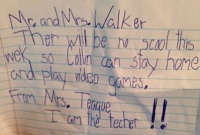 Mr. and Mrs. Walker
Ther will be no scool this
wek, so Colin can stay home
and play video games.
From Mrs. Teague
I am the techer !!